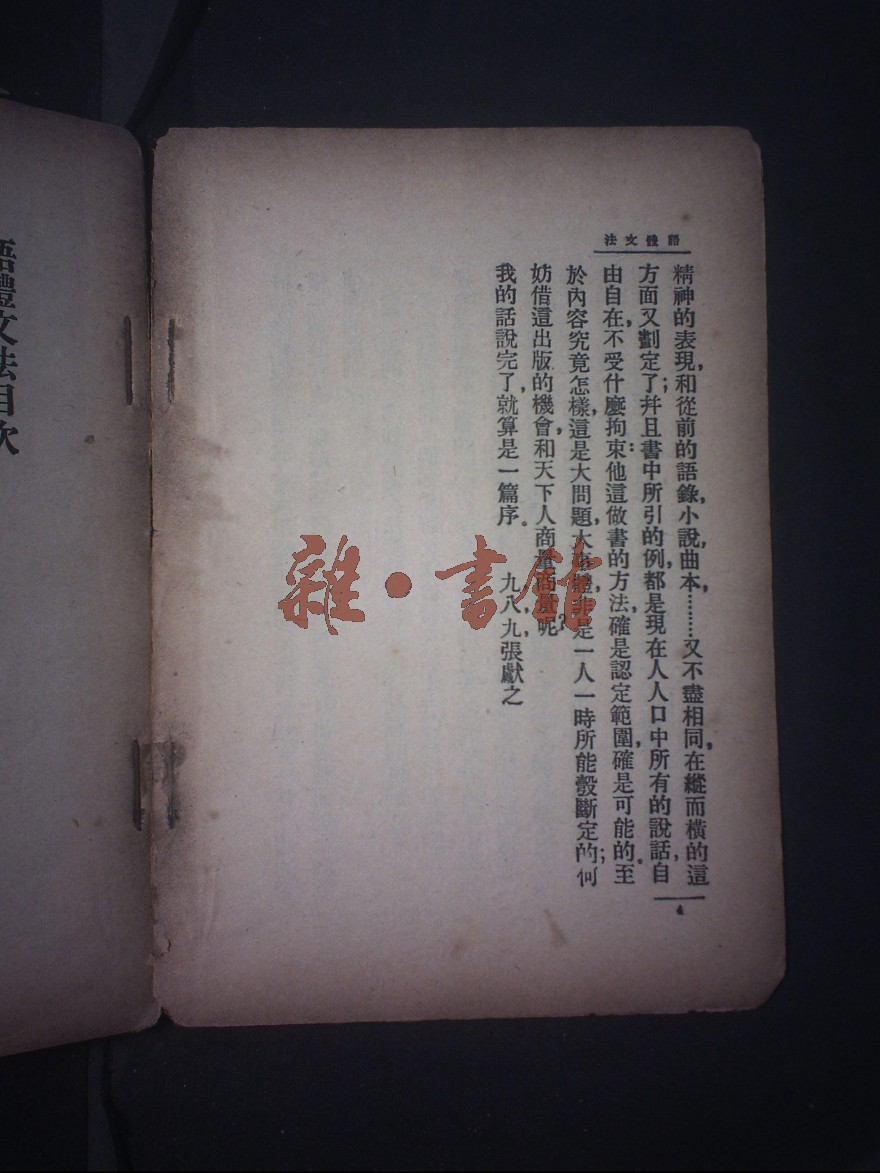 語體文法
精神的表現，和從前的語錄，小說，曲本，………又不盡相同，在縱而橫的這
方面又劃定了；幷且書中所引的例，都是現在人人口中所有的說話，自
由自在，不受什麼拘束：他這做書的方法，確是認定範圍，確是可能的。至
於內容究竟怎樣，這是大問題，大事體，非是一人一時所能彀斷定的；何
妨借這出版的機會，和天下人商量商量呢？
我的話說完了，就算是一篇序。 九，八，九，張獻之
4
語體文法目次
雜·書館